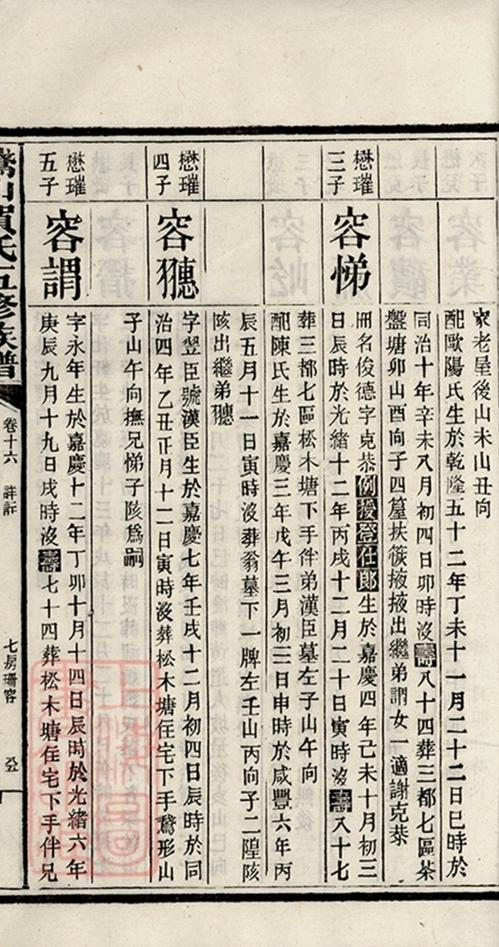 家老屋後山未山丑向
配歐陽氏生於乾隆五十二年丁未十一月二十二日巳時於
同治十年辛未八月初四日卯時沒壽八十四葬三都七區茶
盤塘卯山酉向子四篁扶筱掖掖出繼弟謂女一適謝克恭
懋璀
三子
容悌
冊名俊德字克恭例授登仕郎生於嘉慶四年己未十月初三
日辰時於光緒十二年丙戌十二月二十日寅時沒壽八十七
葬三都七區松木塘下手伴弟漢臣墓左子山午向
配陳氏生於嘉慶三年戊午三月初三日申時於咸豐六年丙
辰五月十一日寅時沒葬翁墓下一牌左壬山丙向子二隍陔
陔出繼弟
懋璀
四子
字翌臣號漢臣生於嘉慶七年壬戌十二月初四日辰時於同
治四年乙丑正月十二日寅時沒葬松木塘住宅下手鵞形山
子山午向撫兄悌子陔爲嗣
懋璀
五子
容謂
字永年生於嘉慶十二年丁卯十月十四日辰時於光緒六年
庚辰九月十九日戌時沒壽七十四葬松木塘住宅下手伴兄
山賀氏五修族譜
卷十六
詳註
七房珊容